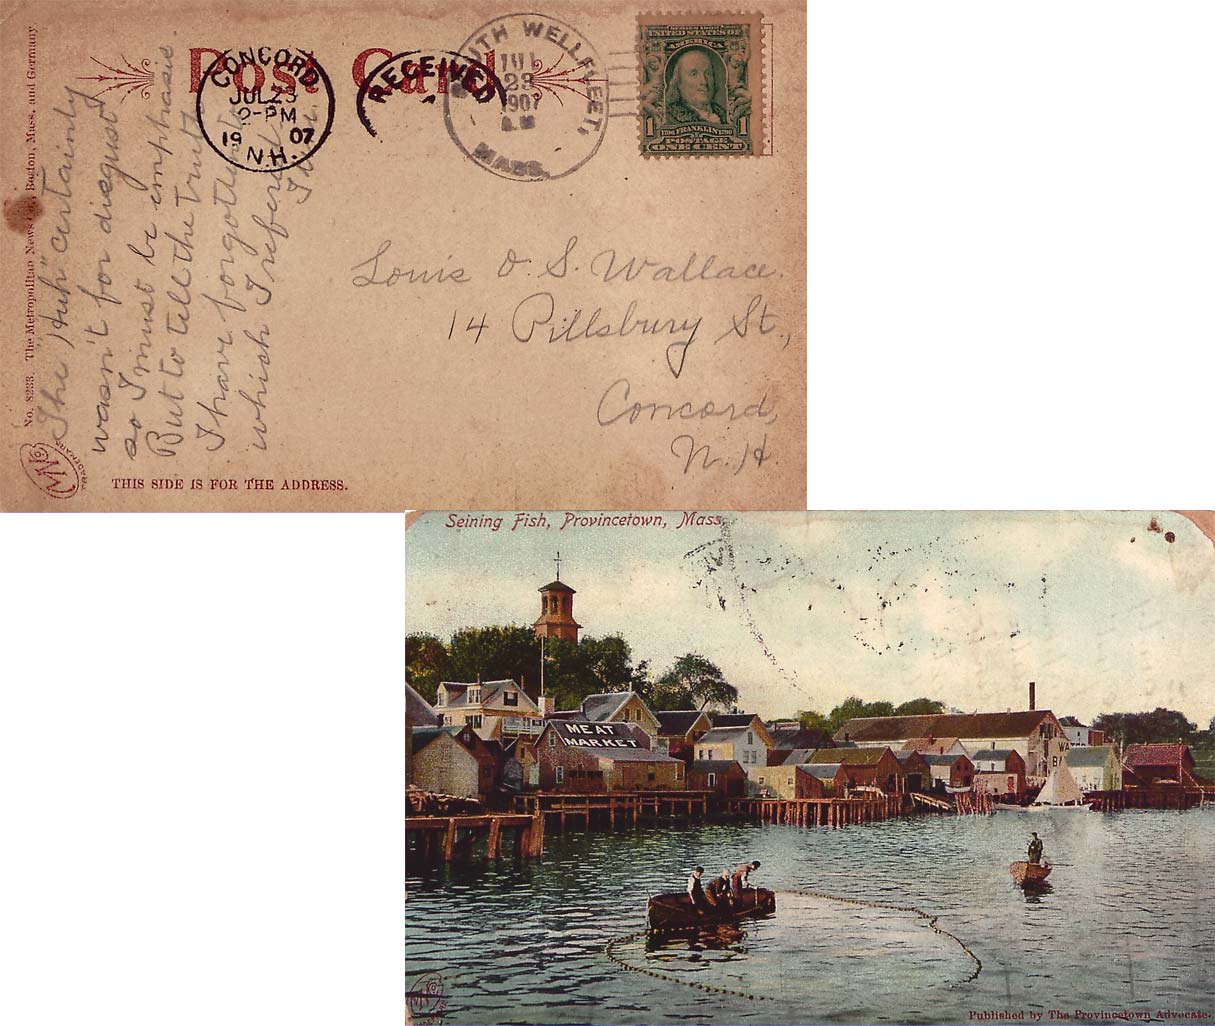 Post Card
CONCORD
JUL 23
2-PM
19 07
N.H.
RECEIVED
SOUTH WELLFLEET,
JUL
23
1907
A.M
MASS.
SERIES 1902
UNITED STATES OF
AMERICA
1
1
1706 FRANKLIN 1790
POSTAGE
ONE CENT
No. 8233. The Metropolitan News Co., Boston, Mass. and Germany
The "Huh" certainly
wasn't for disgust
so I must be emphasis.
But to tell the truth
I have forgotten to
which I referred.
Louis O. S. Wallace.
14 Pillsbury St.,
Concord,
N. H.
MN Co.
TRADEMARK
THIS SIDE IS FOR THE ADDRESS.
Seining Fish, Provincetown, Mass.
MEAT
MARKET
Published by The Provincetown Advocate.